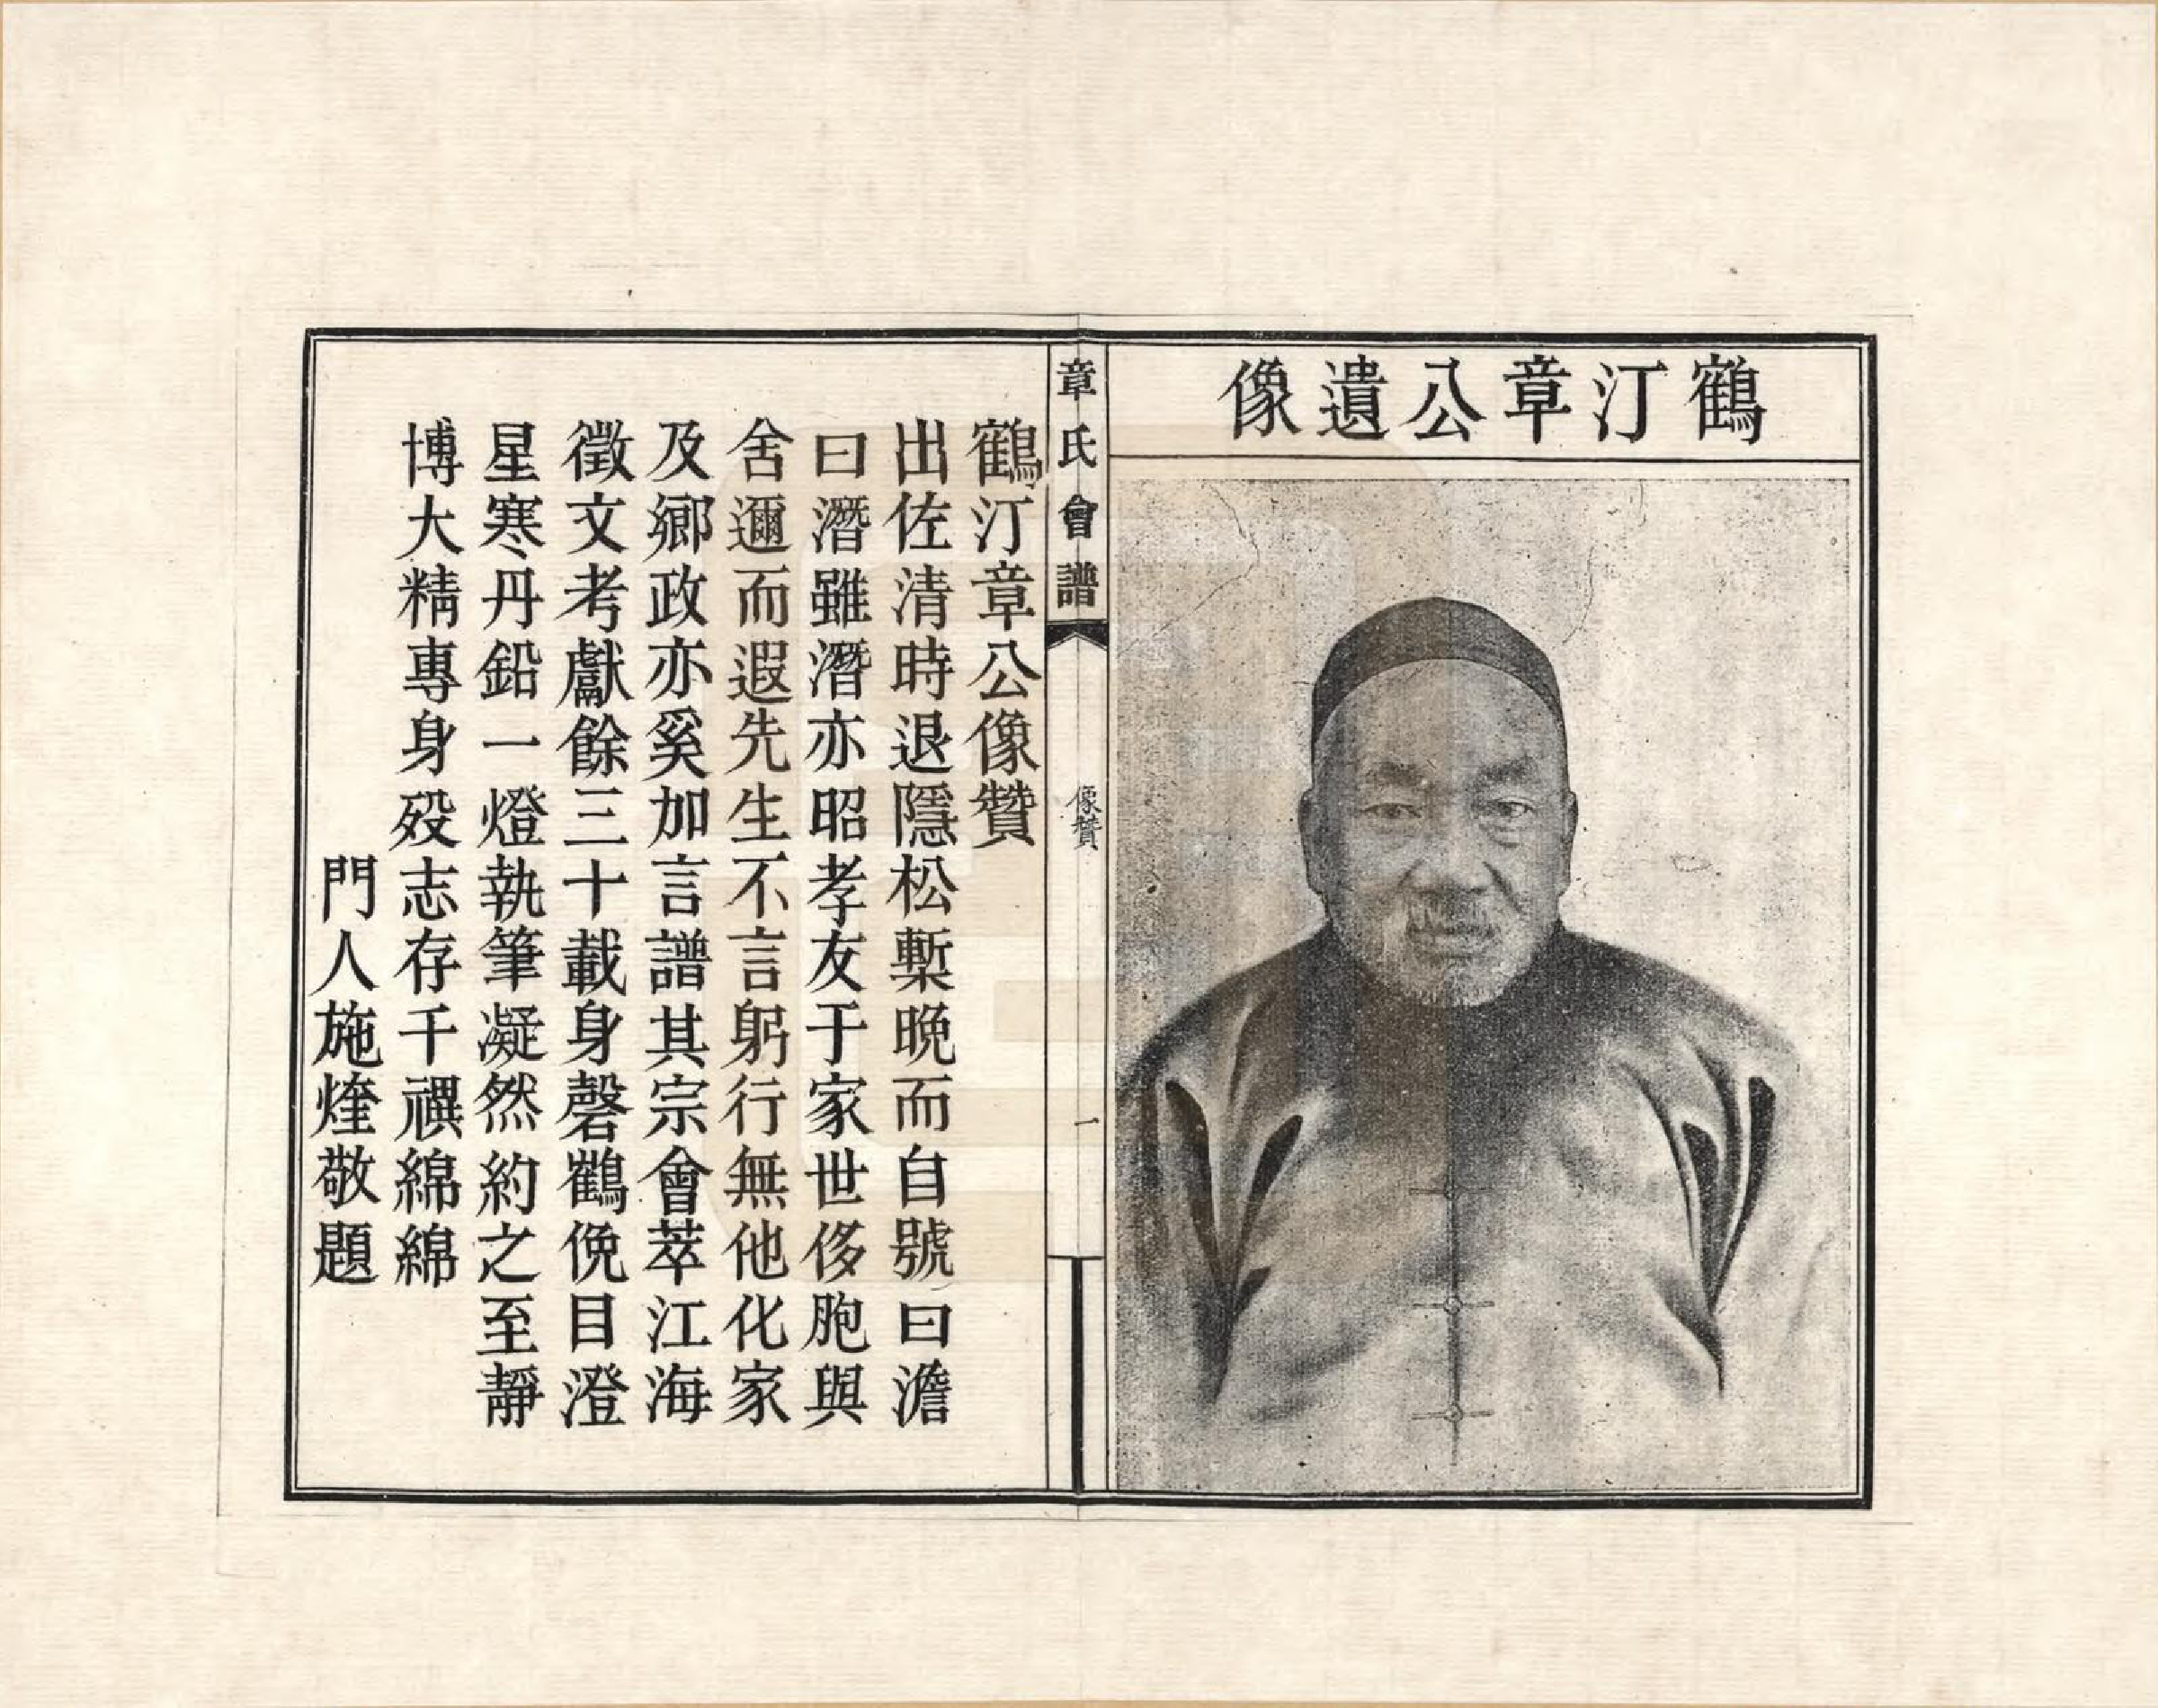 鶴汀章公遺像
章氏會譜
像贊
一
鶴汀章公像贊
出佐清時退隱松槧晚而自號曰澹
曰潛雖潛亦昭孝友于家世侈胞與
舍邇而遐先生不言躬行無他化家
及鄉政亦奚加言譜其宗會萃江海
徵文考獻餘三十載身磬鶴俛目澄
星寒丹鉛一燈執筆凝然約之至靜
博大精專身歿志存千禩綿綿
門人施煃敬題